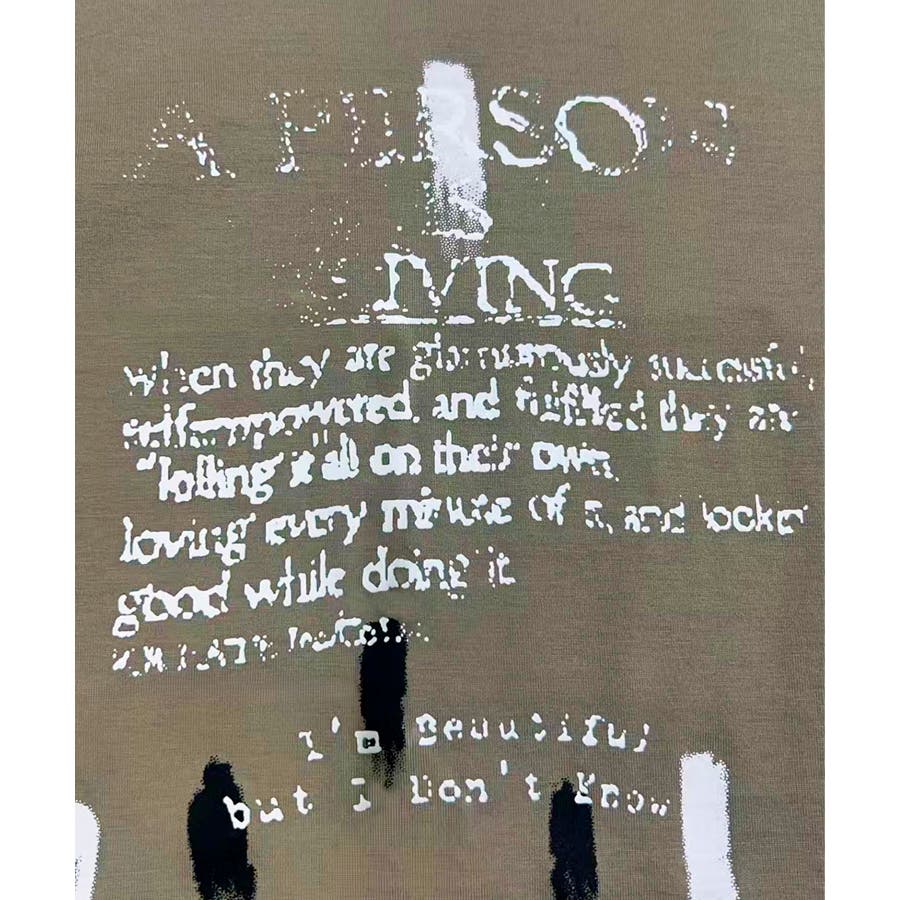 A PERSON
IS
LIVING
when they are glamourously successful,
self empowered, and fulfilled they are
"killing it" all on their own
loving every minute of it, and looking
good while doing it
I'm Beautiful
but I Don't Know